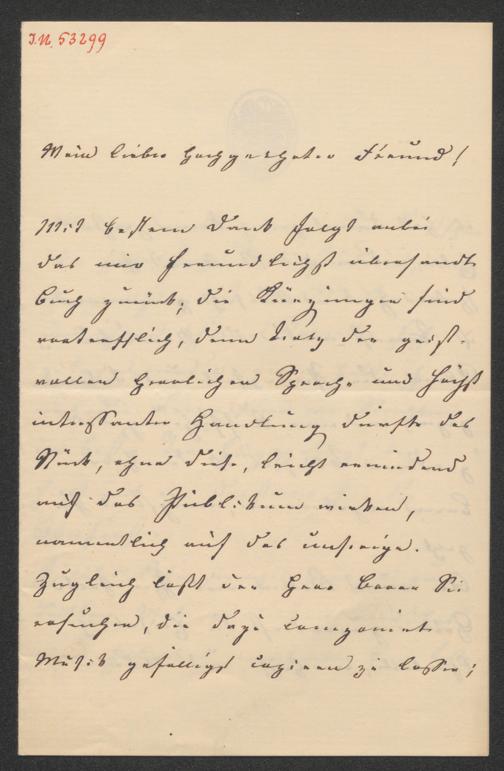 I.N. 53299
Mein lieber hochgeehrter Freund!
Mit bestem Dank folgt anbei
das mir freundlichst übersandte
Buch zurück; die Kürzungen sind
vortrefflich, denn trotz der geist-
vollen herrlichen Sprache und höchst
interessanten Handlung dürfte das
Stück, ohne diese, leicht ermüdend
auf das Publikum wirken,
namentlich auf das unsrige.
Zugleich läßt der Herr Sie
ersuchen, die dazu componierte
Musik gefälligst copieren zu lassen;